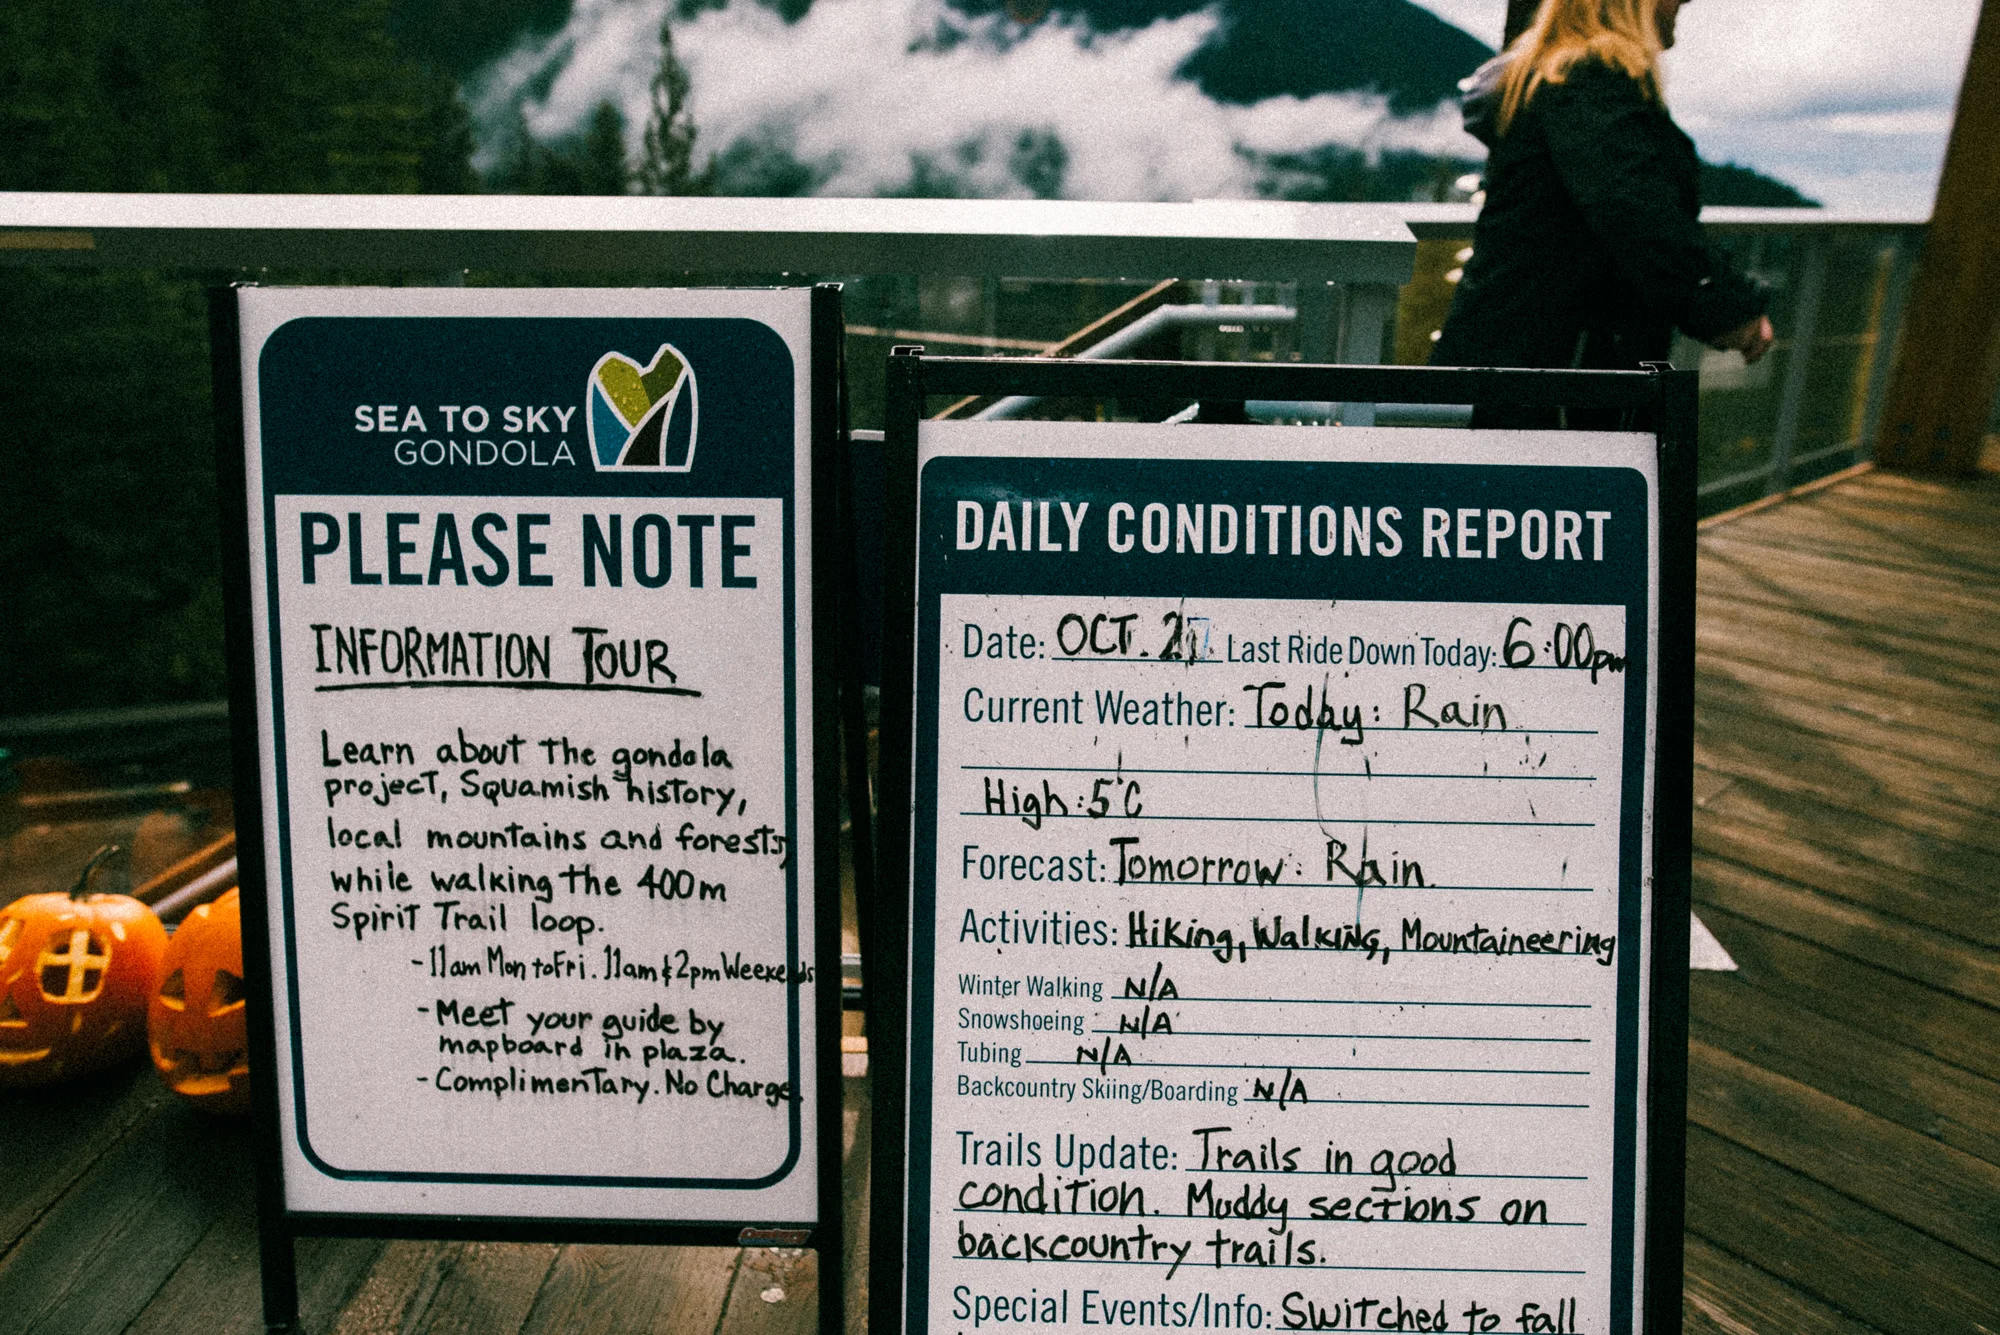 SEA TO SKY
GONDOLA
PLEASE NOTE
INFORMATION TOUR
Learn about the gondola
project, Squamish history,
local mountains and forests,
while walking the 400m
Spirit Trail loop.
- 11am Mon to Fri. 11am & 2pm Weekends
- Meet your guide by
mapboard in plaza.
- Complimentary. No Charge.
DAILY CONDITIONS REPORT
Date: OCT. Last Ride Down Today: 6:00pm
Current Weather: Today: Rain
High: 5°C
Forecast: Tomorrow: Rain.
Activities: Hiking, Walking, Mountaineering
Winter Walking N/A
Snowshoeing N/A
Tubing N/A
Backcountry Skiing/Boarding N/A
Trails Update: Trails in good
condition. Muddy sections on
backcountry trails.
Special Events/Info: Switched to fall